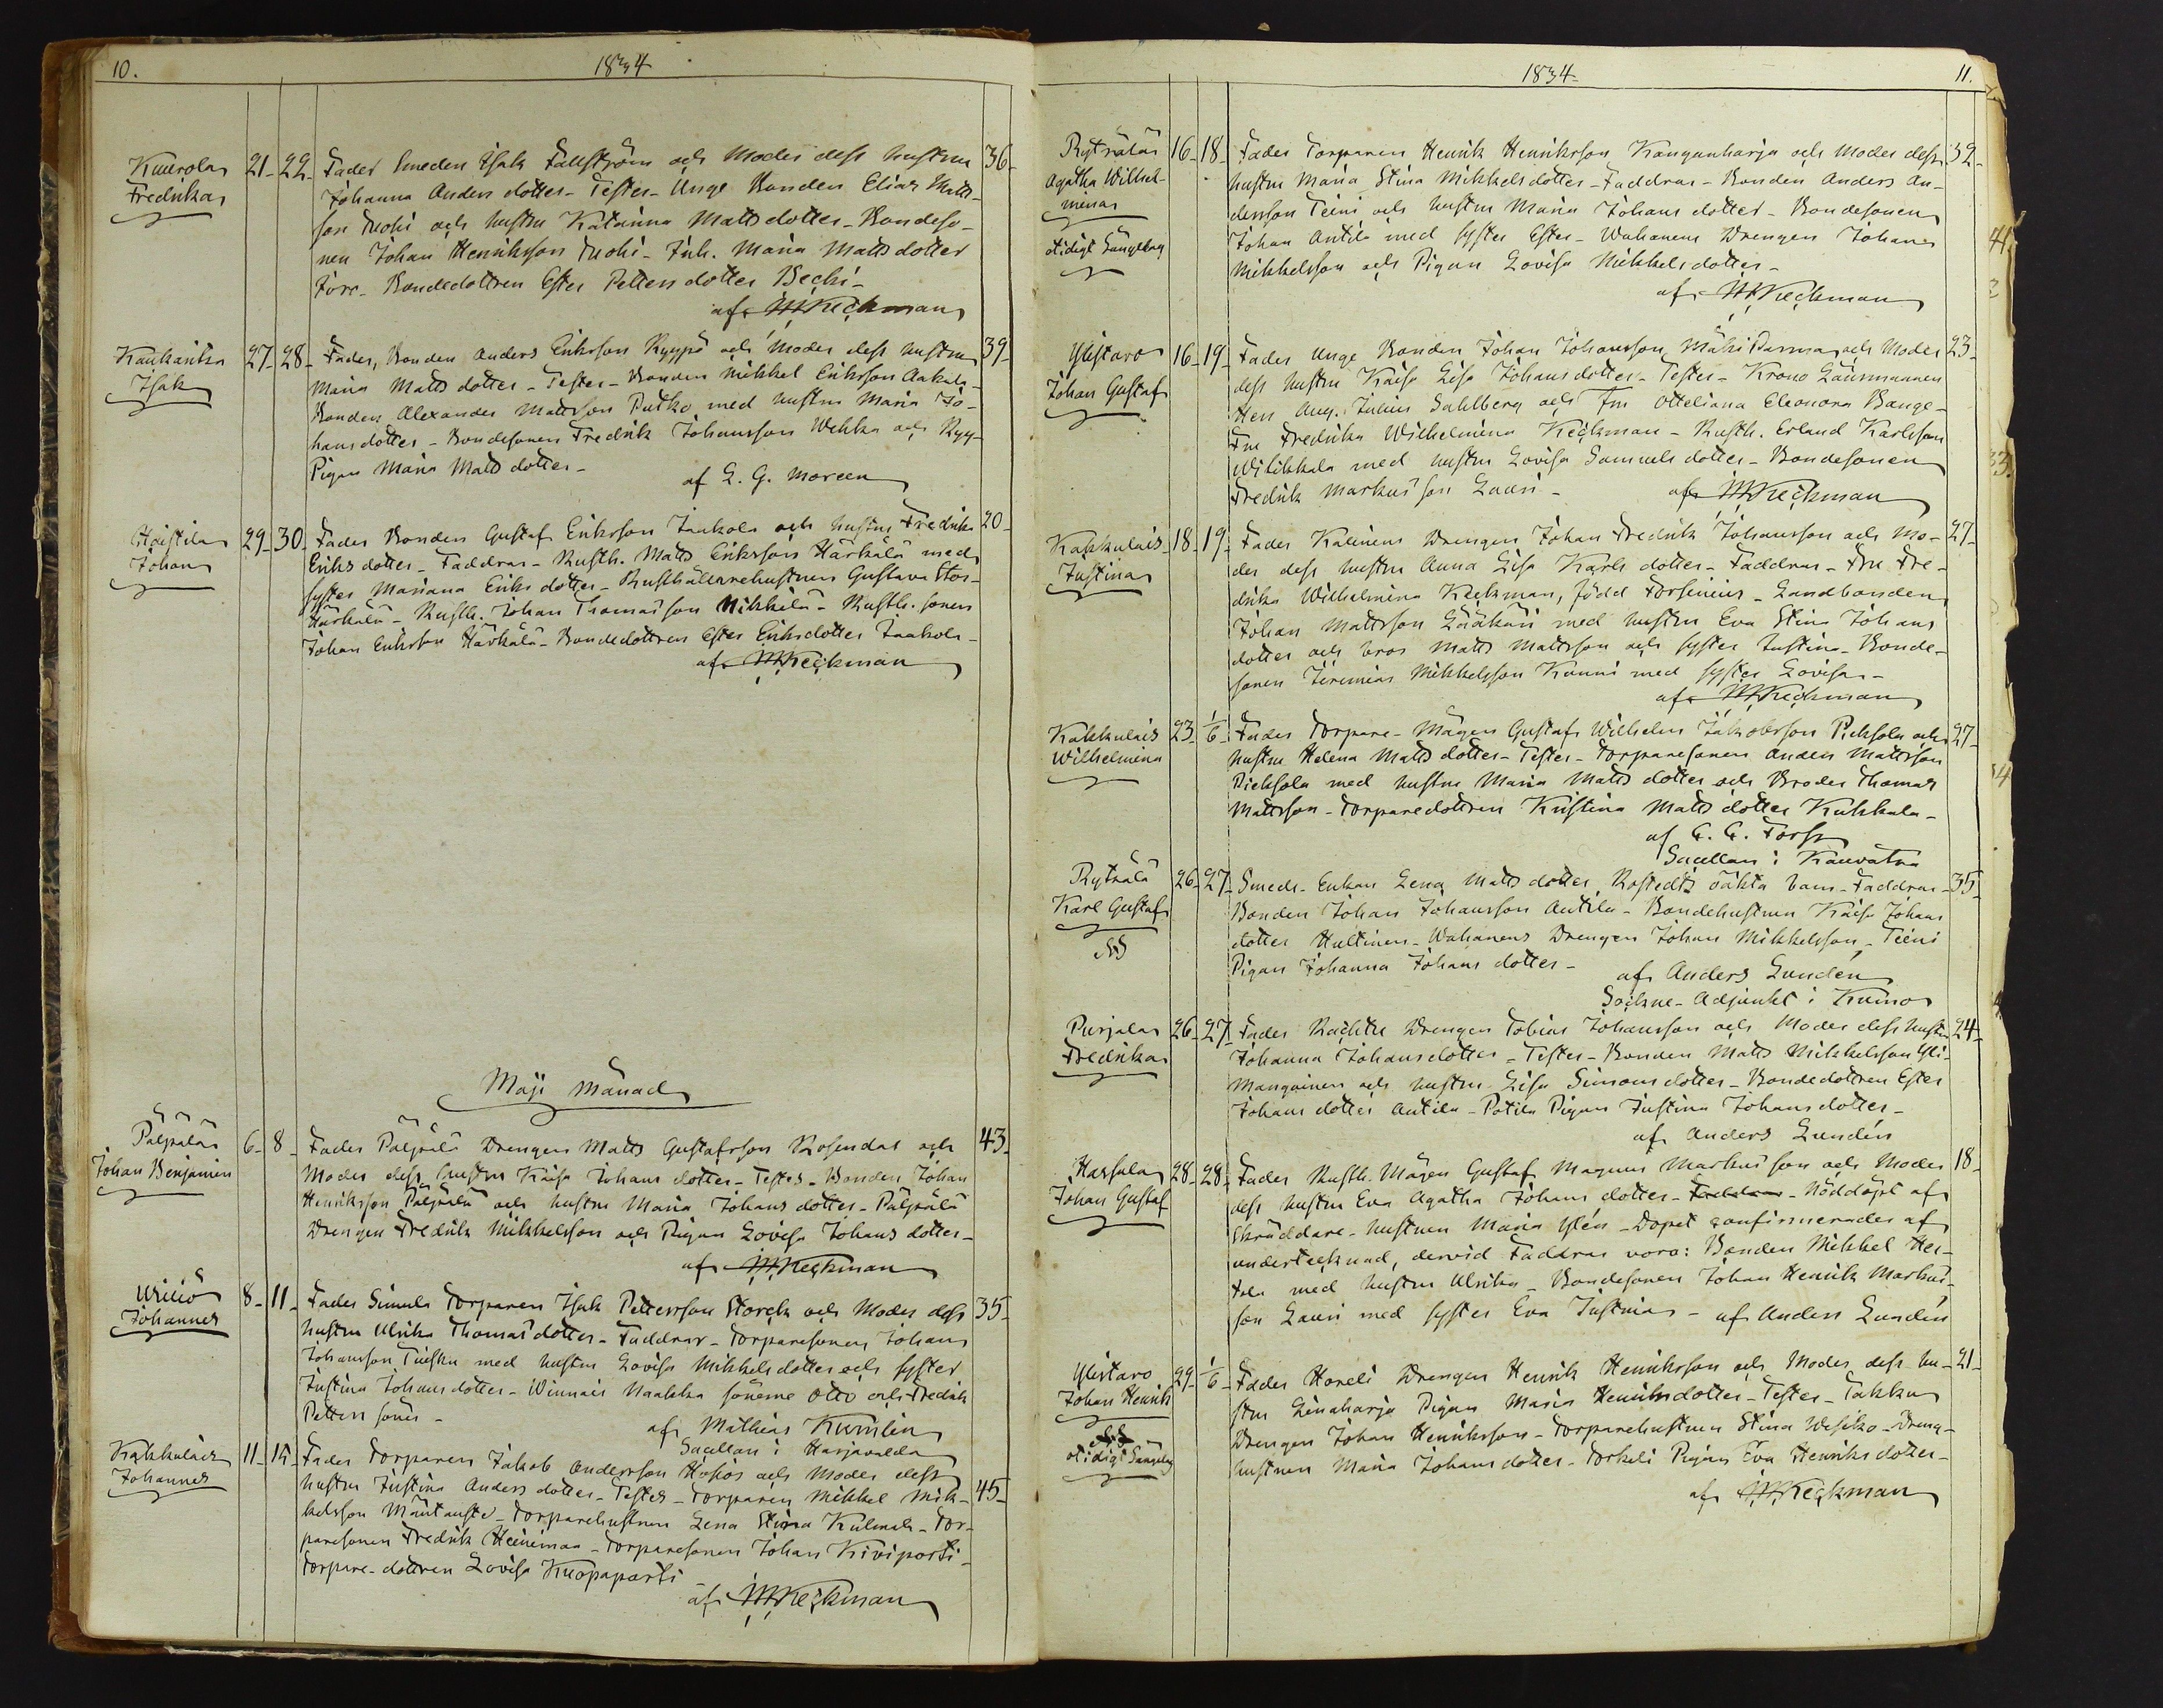 10.
1834
Kuurola 21. 22. Fader Smeden Isak Fallström och Moder dess hustru 36
Fredrika Johanna Anders dotter - Tester - Unge Bonden Elias Matts-
son Tuohi och hustru Katarina Matts dotter - Bondeso-
nen Johan Henriksson Tuohi - Inh. Maria Matts dotter
Bondedottren Ester Petters dotter
af M Keckman
27. 28. Fader, Bonden Anders Eriksson Kyypä och Moder dess hustru 39
Isak Maria Matts dotter - Tester - Bonden Mikkel Eriksson Aakula -
Bonden Alexander Mattsson Putko med hustru Maria Jo-
hans dotter - Bondesonen Fredrik Johansson Wehka och Kyy-
Pigan Maria Matts dotter -
af L. G. Moreen
Haistila 29. 30. Fader Bonden Gustaf Eriksson Jaakola och hustru Fredrika 20
Johan Eriks dotter - Faddrar - Rusth. Matts Eriksson Härkälä med
syster Mariana Eriks dotter - Rusthållarehustrun Gustava Stor-
Härkälä - Rusth. Johan Thomasson Nikkilä - Rusth. sonen
Johan Eriksson Härkälä - Bondedottren Ester Eriksdotter Jaakola -
af M Keckman
Maji Månad
Palpala 6. 8. Fader Palpälä Drengen Matts Gustafsson Rosendal och 43
Johan Benjamin Moder dess hustru Kaisa Johans dotter - Tester - Bonden Johan
Henriksson Palpälä och hustru Maria Johans dotter - Palpälä
Drengen Fredrik Mikkelsson och Pigan Lovisa Johans dotter -
af M Keckman
8. 11. Fader Simula Torparen Isak Pettersson Storck och Moder dess 35
Johannes hustru Ulrika Thomas dotter - Faddrar - Torparesonen Johan
Johansson Tuisku med hustru Lovisa Mikkels dotter och syster
Justina Johans dotter - Winnais Naakka sönerne Otto och Fredrik
Petters söner -
af Mathias Kumlin
Sacellan i Harjavalda
Kakkulais 11. 15. Fader Torparen Jakob Andersson och Moder dess
Johannes hustru Justina Anders dotter - Tester - Torparen Mikkel Mik- 45
kelsson Mäntausta - Torparehustrun Lena Stina Kulmala - Tor-
paresonen Fredrik Heinimaa - Torparesonen Johan Kiviporti -
Torpare-dottren Lovisa Kuopaporti
af M Keckman
1834
11.
Pyträlä 16. 18. Fader Torparen Henrik Henriksson Kanganharja och Moder dess 32
Agatha Wilhel- hustru Maria Stina Mikkels dotter - Faddrar - Bonden Anders An-
mina dersson Teini och hustru Maria Johans dotter - Bondesonen
otidigt Sänglag Johan Antila med syster Ester - Wahanens Drengen Johan
Mikkelsson och Pigan Lovisa Mikkels dotter -
af M Keckman
Ylistaro 16. 19. Fader Unge Bonden Johan Johansson Mäki och Moder 23
Johan Gustaf dess hustru Kaisa Lisa Johans dotter - Tester - Krono Länsmannen
Herr Aug. Julius Sahlberg och Fru Otteliana Eleonora Bange -
Fru Fredrika Wilhelmina Keckman - Rusth. Erland Karlsson
Wilikkala med hustru Lovisa Samuels dotter - Bondesonen
Fredrik Markusson Lauri -
af M Keckman
Kakkulais 18. 19. Fader Drengen Johan Fredrik Johansson och Mo- 27
Justina der dess hustru Anna Lisa Karls dotter - Faddrar - Fru Fre-
drika Wilhelmina Keckman, född Forsenius - Landbonden
Johan Mattsson Lääkäri med hustru Eva Stina Johans
dotter och bror Matts Mattsson och syster Justina - Bonde-
sonen Jeremias Mikkelsson Kanni med syster Lovisa -
af M Keckman
Kakkulais 23. 1/6 Fader Torpare-Mågen Gustaf Wilhelm Jakobsson Pichsola och 27
Wilhelmina hustru Helena Matts dotter - Tester - Torparesonen Anders Mattsson
Pichsola med hustru Maria Matts dotter och Broder Thomas
Mattsson - Torparedottren Kristina Matts dotter Kakkula -
af G. G. Forss
Sacellan i Kauvatsa
Pyträlä 26. 27. Smeds-Enkan Lena Matts dotter Rostedts oäkta barn - Faddrar - 35
Karl Gustaf Bonden Johan Johansson Antila - Bondehustrun Kaisa Johans
dotter Hultinen - Wahanens Drengen Johan Mikkelsson - Teini
Pigan Johanna Johans dotter -
af Anders Lundén
Sockne-Adjunkt i Kumo
Purjala 26. 27. Fader Drengen Tobias Johansson och Moder dess hustru 24
Fredrika Johanna Johans dotter - Tester - Bonden Matts Mikkelsson Yli-
Manguinen och hustru Lisa Simons dotter - Bondedottren Ester
Johans dotter Antila - Potila Pigan Justina Johans dotter -
af Anders Lundén
Hassala 28. 28. Fader Rusth. Mågen Gustaf Magnus Markusson och Moder 18
Johan Gustaf dess hustru Eva Agatha Johans dotter - Faddrar - Nöddöpt af
Skräddare-hustrun Maria Ylén - Dopet confirmerades af
undertecknad, dervid Faddrar voro: Bonden Mikkel Her-
tola med hustru Ulrika - Bondesonen Johan Henrik Markus-
son Lauri med syster Eva Justina - af Anders Lundén
Ylistaro 29. 1/6 Fader Horeli Drengen Henrik Henriksson och Moder dess hu- 21
Johan Henrik stru Linaharja Pigan Maria Henriksdotter - Tester - Takku
Drengen Johan Henriksson - Torparehustrun Stina Wesiko - Dreng-
otidigt Sänglag hustrun Maria Johans dotter - Torkeli Pigan Eva Henriks dotter -
af M Keckman